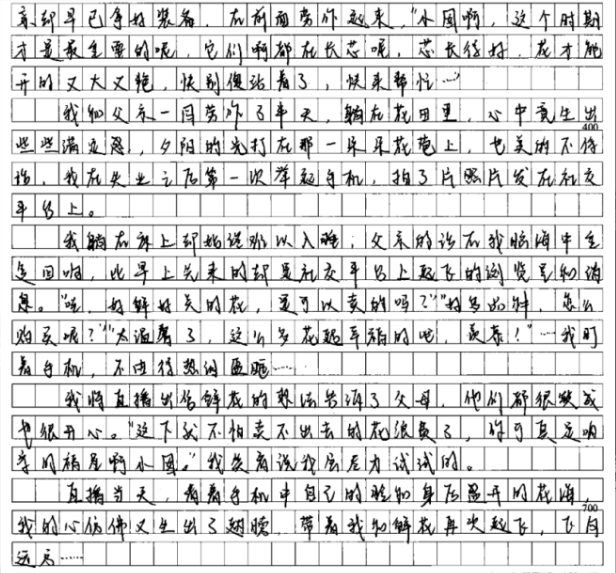 亲却早已穿好装备，在前面劳作起来，“小园啊，这个时期
才是最重要的呢，它们啊都在长芯呢，芯长得好，花才能
开的又大又艳，快别傻站着了，快来帮忙……
我和父亲一同劳作了半天，躺在花田里，心中竟生出
些些满足感，夕阳的光打在那一朵朵花苞上，也美的不像
话，我在失业之后第一次举起手机，拍了片照片发在社交
400
平台上。
我躺在床上却始终难以入睡；父亲的话在我脑海中重
复回响，比早上先来的却是社交平台上起飞的浏览量和消
息。“哇，好鲜好美的花，是可以卖的吗？”“好多品种，怎么
购买呢？”“太温馨了，这么多花超幸福的吧，羡慕！”……我盯
着手机，不由得热泪盈眶……
我将直播出售鲜花的想法告诉了父母，他们都很赞成
也很开心。“这下我不怕卖不出去的花浪费了，你可真是咱
家的福星啊小园。”我笑着说我会尽力试试的。
直播当天，看着手机中自己的脸和身后盛开的花海，
我的心仿佛又生出了翅膀，带着我和鲜花再次起飞，飞向
700
远方……